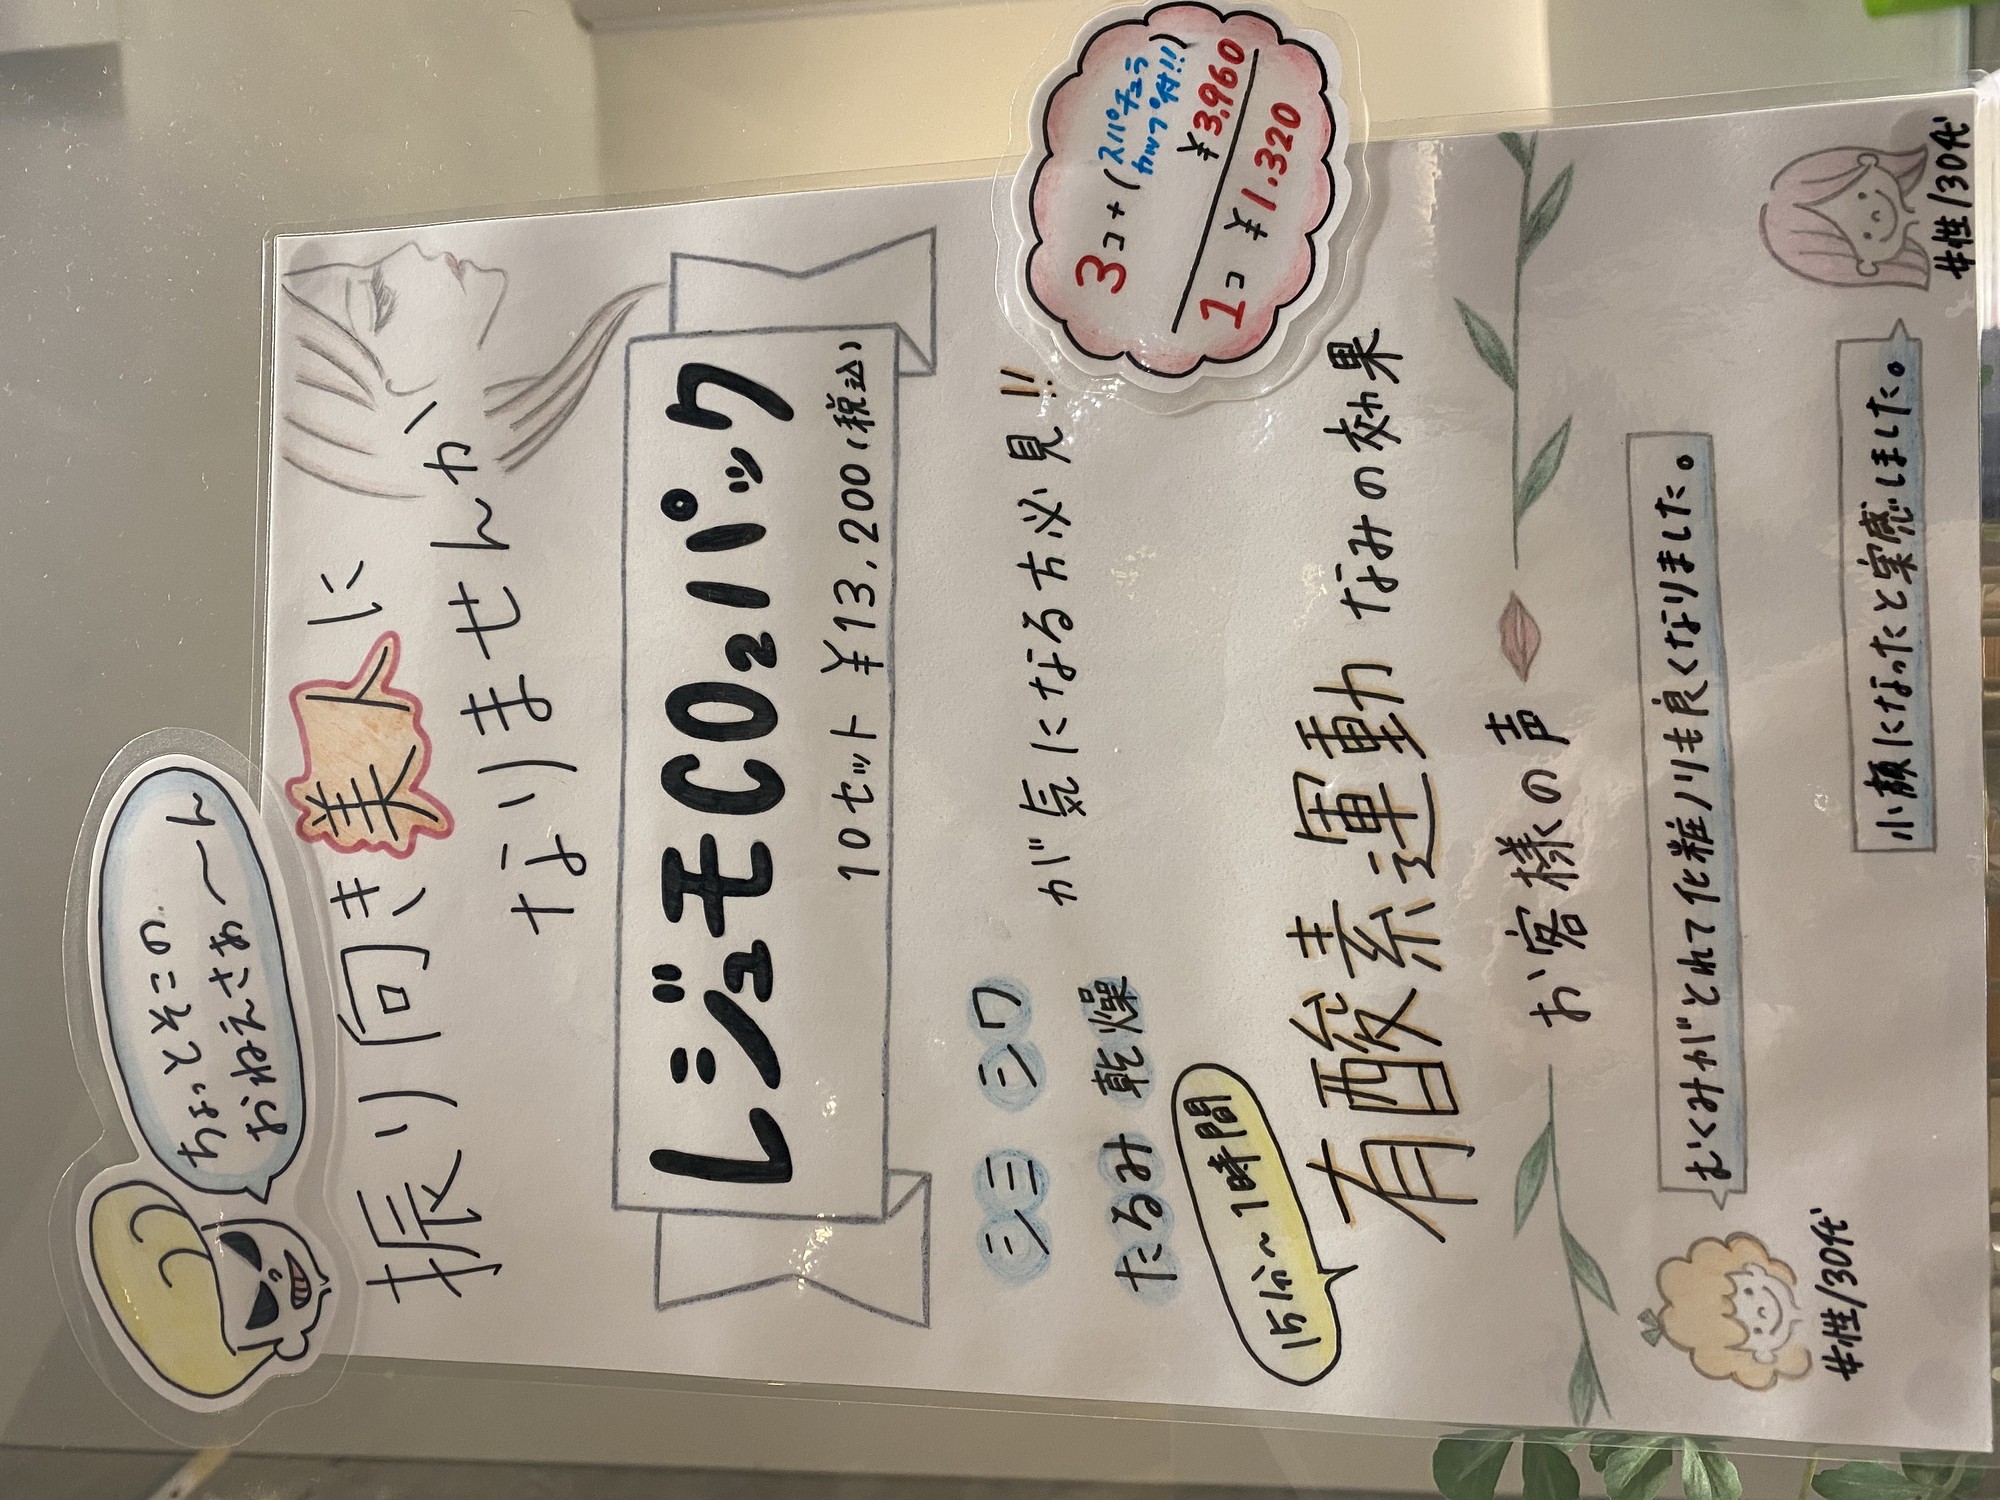 ちょっとそこの
おねえさぁ〜ん
振り向き美人に
なりませんか
レジュモCO₂パック
10セット ¥13,200(税込)
3コ+(スパチュラ
カップ付!!)
¥3,960
1コ ¥1.320
シミ シワ
たるみ 乾燥
が気になる方必見!!
15分〜1時間
有酸素運動 なみの効果
お客様の声
むくみがとれて化粧ノリも良くなりました。
女性/30代
小顔になったと実感しました。
女性/30代